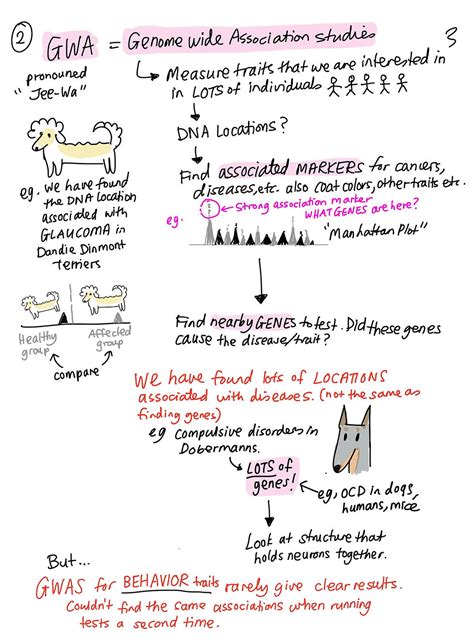 ② GWA = Genome wide Association studies 3
pronouned
"Jee-Wa"
Measure traits that we are interested in
in LOTS of individuals
DNA Locations?
Find associated MARKERS for cancers,
diseases, etc. also coat colors, other traits etc.
eg. We have found
the DNA location
associated with
GLAUCOMA in
Dandie Dinmont
Terriers
eg. Strong association marker
WHAT GENES are here?
"Manhattan Plot"
Healthy group
Affected group
compare
Find nearby GENES to test. Did these genes
cause the disease/trait?
We have found lots of LOCATIONS
associated with diseases. (not the same as
finding genes)
eg compulsive disorders in
Dobermanns.
LOTS of
genes!
eg, OCD in dogs,
humans, mice,
Look at structure that
holds neurons together.
But...
GWAS for BEHAVIOR traits rarely give clear results.
Couldn't find the same associations when running
tests a second time.